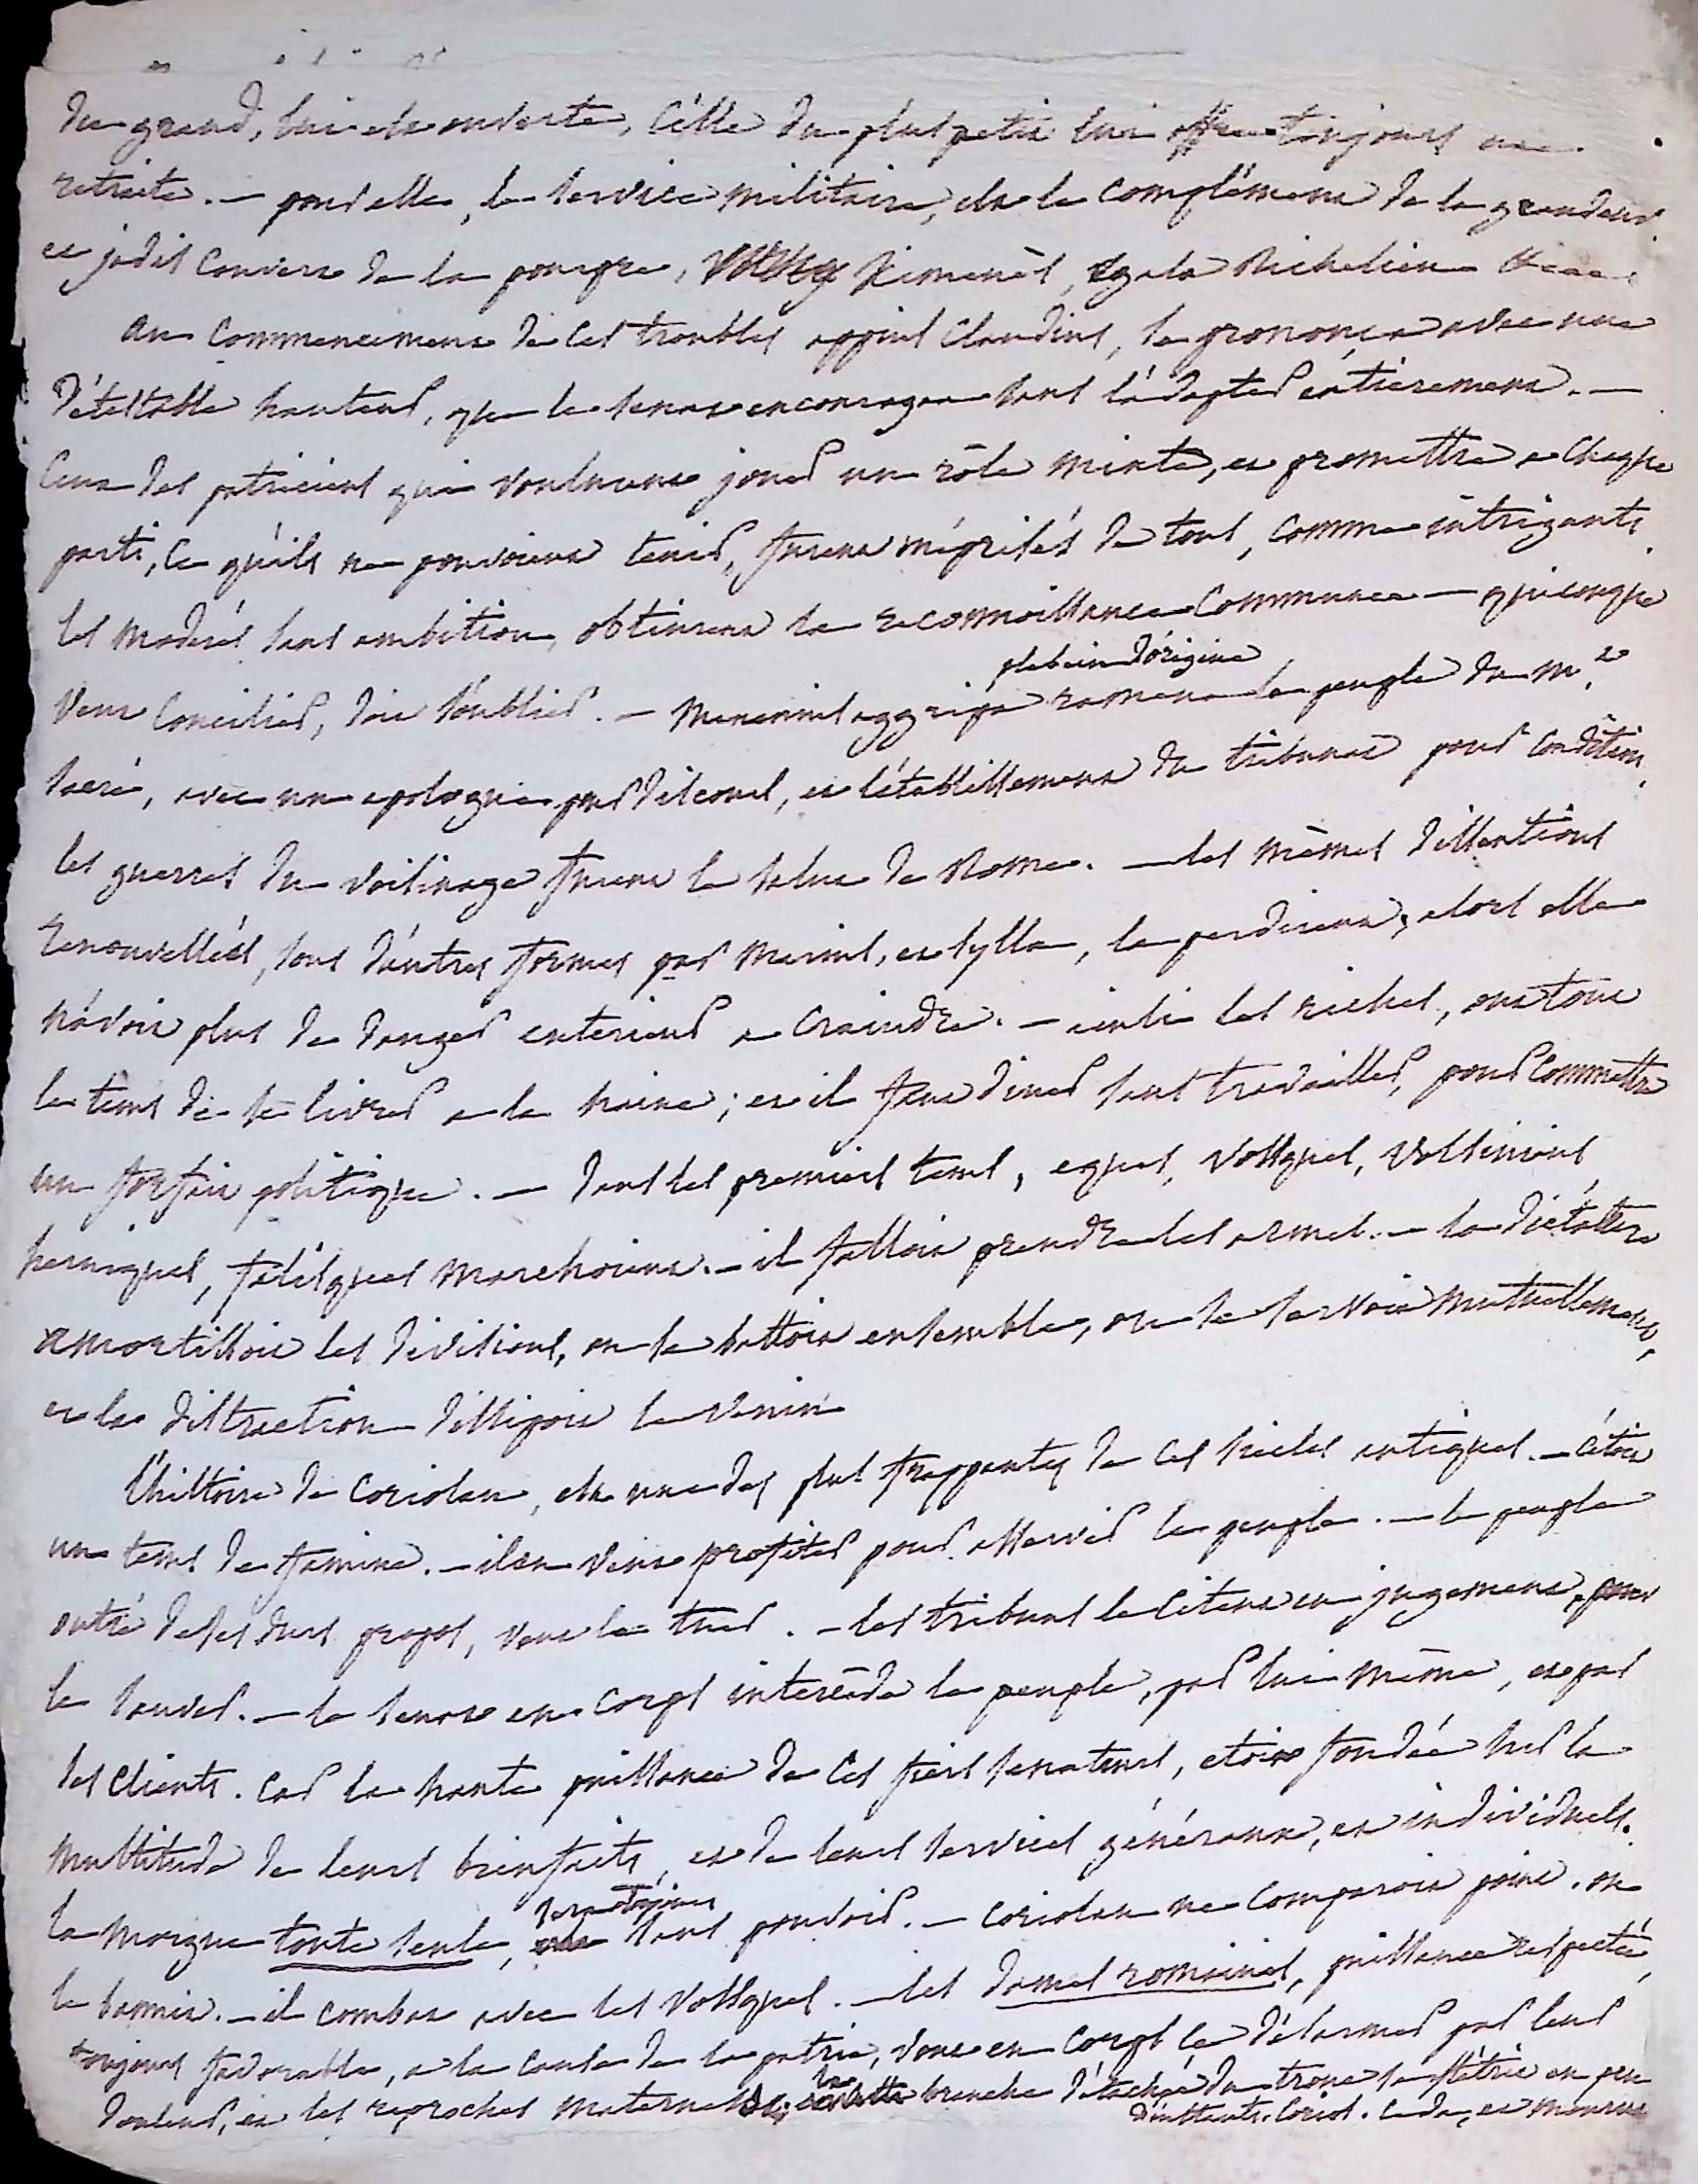 du grand, lui est ouverte, celle du plus petit lui offre toujours une
retraite. — pour elle, le service militaire, est le complément de la grandeur
et jadis couvert de la pourpre, Ximenès, égala Richelieu
au commencement de ces troubles appius Claudius, se prononça avec une
détestable hauteur, que le senat encouragea sans l'adopter entièrement. —
Ceux des patriciens qui voulurent jouer un rôle mixte, et promettre a chaque
parti, ce qu'ils ne pouvoient tenir, furent méprisés de tous, comme intrigants.
les moderés sans ambition, obtinrent la reconnoissance commune — quiconque
veut concilier, doit s'oublier. — Menenius aggripa plebeien d'origine ramena le peuple du m.t
sacré, avec un apologue pour discours, et l'établissement du tribunat pour condition.
les guerres du voisinage furent le salut de Rome. — les mêmes dissentions
renouvellées, sous d'autres formes par Marius, et sylla, la perdirent, alors elle
n'avoit plus de danger exterieur a craindre. — ainsi les riches, ont tout
le tems de se livrer a la haine; et il faut diner sans travailler, pour commettre
un forfait politique. — Dans les premiers tems, eques, volsques, volsiniens,
herniques, falisques marchoient. — il falloit prendre les armes. — la dictature
amortissoit les divisions, on se battoit ensemble, on se servoit mutuellement,
et la distraction dissipoit le venin
L'histoire de Coriolan, est une des plus frappantes de ces siecles antiques. — c'étoit
un tems de famine. — il en veut profiter pour asservir le peuple. — le peuple
outré de ses durs propos, veut le tuer. — les tribuns le citent en jugement, pour
le sauver. — le senat en corps intercède le peuple, par lui même, et par
ses clients. car la haute puissance de ces fiers senateurs, etoit fondée sur la
multitude de leurs bienfaits, et de leurs services généraux, et individuels.
la morgue toute seule, sera toujours sans pouvoir. — Coriolan ne comparoit point. on
le bannit. — il combat avec les volsques. — les dames romaines, puissance respectée,
toujours favorable, a la cause de la patrie, vont en corps le désarmer par leur
douleur, et les reproches maternels. la branche détachée du tronc se flétrit en peu
d'instants. Coriol. ceda, et mourut